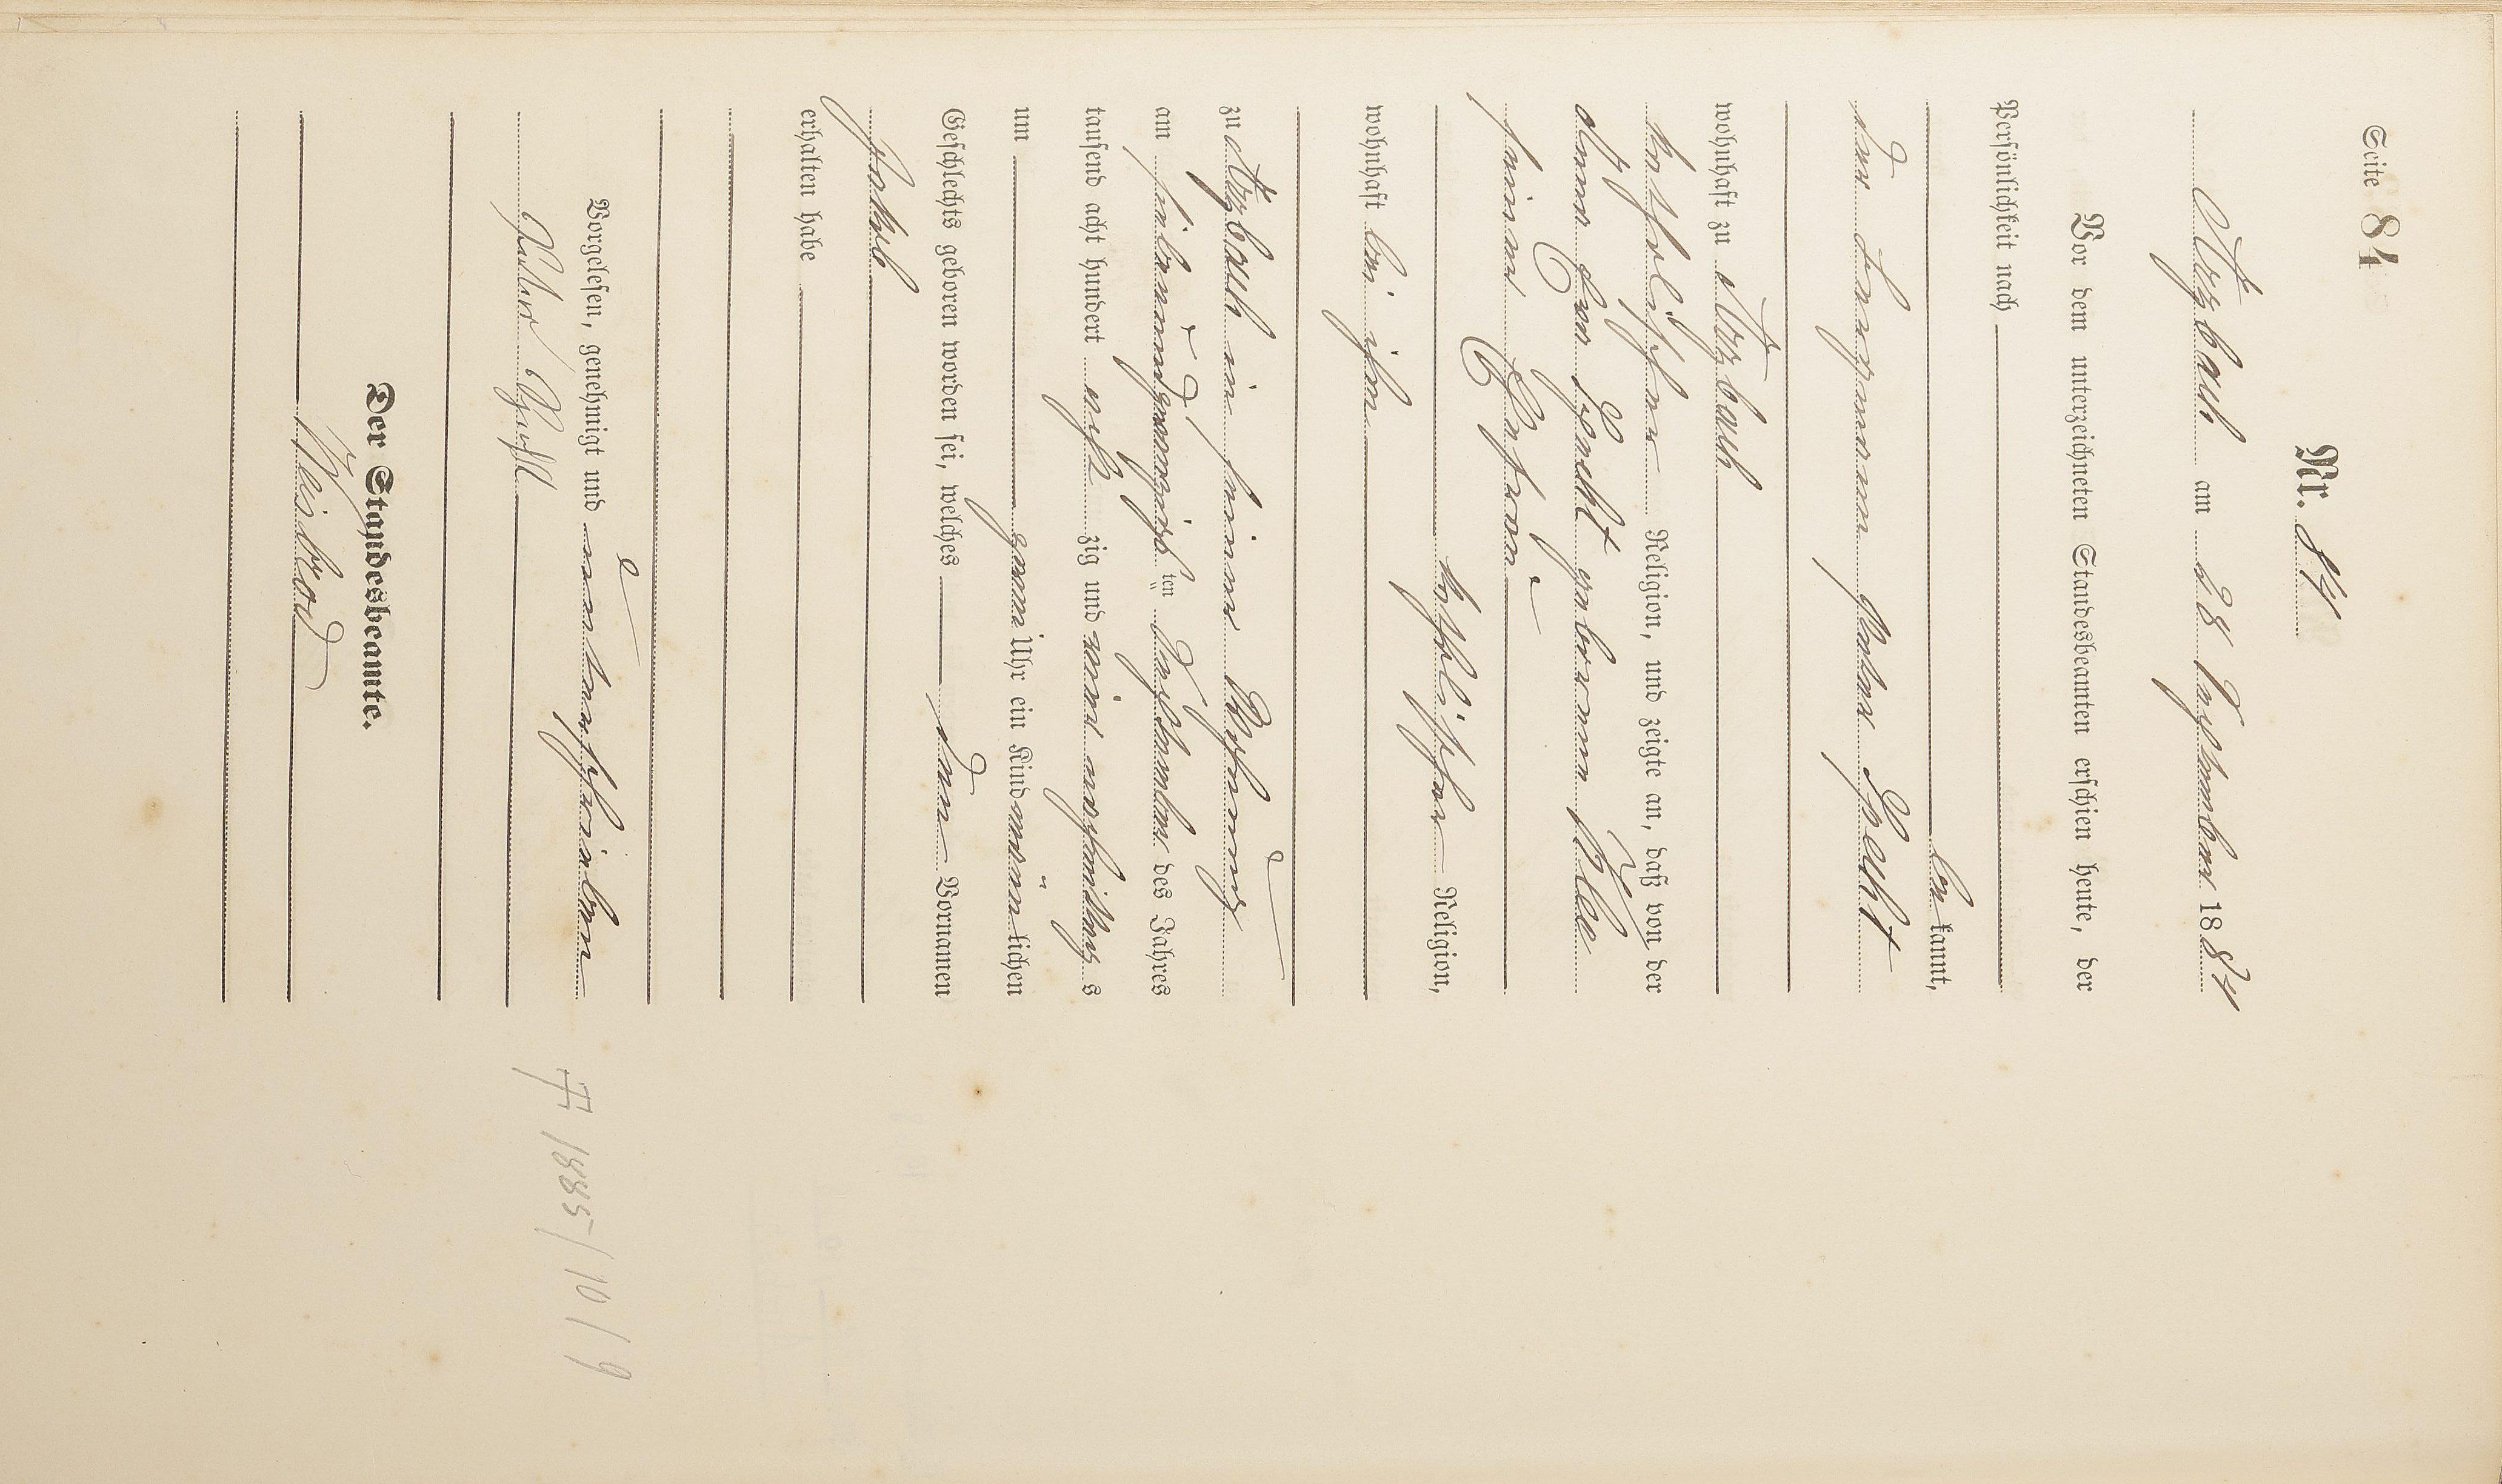 Seite 84
Nr. 84
Arzbach am 28 September 1884
Vor dem unterzeichneten Standesbeamten erschien heute, der
Persönlichkeit nach
be kannt,
der Bergmann Peter Specht
wohnhaft zu Arzbach
katholischer Religion, und zeigte an, daß von der
Anna Eva Specht geborenen Klee
seiner Ehefrau
katholischer Religion,
wohnhaft bei ihm
zu Arzbach in seiner Wohnung
am siebenundzwanzigsten September des Jahres
tausend acht hundert acht zig und vier nachmittags
um zwei Uhr ein Kind männlichen
Geschlechts geboren worden sei, welches den Vornamen
Jakob
erhalten habe
Vorgelesen, genehmigt und unterschrieben
Peter Specht
Der Standesbeamte.
1885/10/9